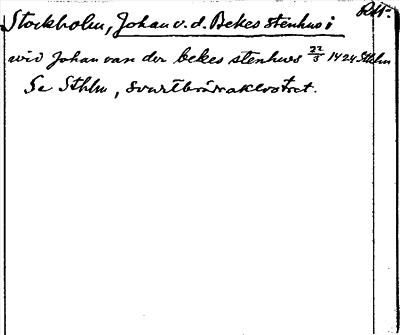 Stockholm, Johan v. d. Bekes stenhus i
wid Johan van der bekes stenhws 22/5 1424 Sthlm
Se Sthlm, svartbrödraklostret.